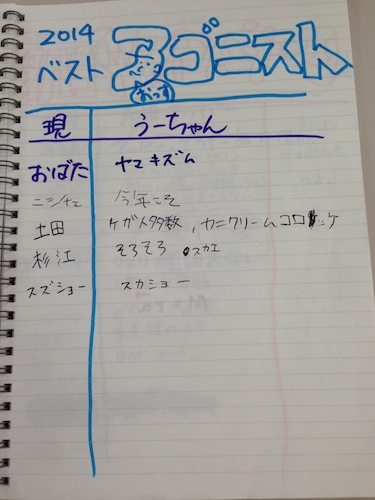 2014
ベスト ヨゴニスト
おっす
現 うーちゃん
おばた ヤマキズム
ニシノチエ 今年こそ
土田 ケガ人多数、カニクリームコロッケ
杉江 そろそろ スカエ
スズショー スカショー